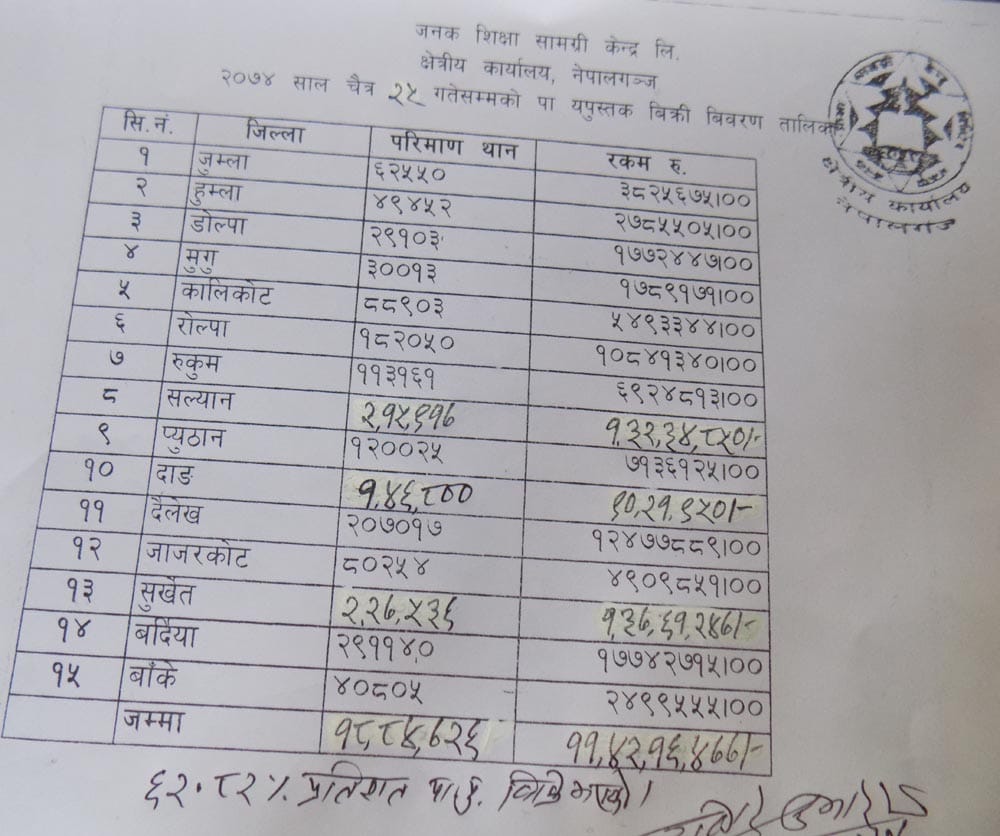 जनक शिक्षा सामग्री केन्द्र लि.
क्षेत्रीय कार्यालय, नेपालगञ्ज
२०७४ साल चैत्र २५ गतेसम्मको पा यपुस्तक बिक्री बिवरण तालिका
क्षेत्रीय कार्यालय
नेपालगञ्ज
सि.नं. जिल्ला परिमाण थान रकम रु.
१ जुम्ला ६२५५० ३८२५६७५।००
२ हुम्ला ४९४५२ २७८५५०५।००
३ डोल्पा २९१०३ १७७२४४७।००
४ मुगु ३००१३ १७८९१७१।००
५ कालिकोट ८८९०३ ५४९३३४४।००
६ रोल्पा १८२०५० १०८४१३४०।००
७ रुकुम ११३१६१ ६९२४८१३।००
८ सल्यान २,१५,९१७ १,३२,३४,८५०/-
९ प्युठान १२००२५ ७१३६१२५।००
१० दाङ १,४६,८०० ९०,२१,९५०/-
११ दैलेख २०७०१७ १२४७७८८९।००
१२ जाजरकोट ८०२५४ ४९०९८५१।००
१३ सुर्खेत २,२७,५३६ १,३७,६१,२४७/-
१४ बर्दिया २९११४० १७७४२७१५।००
१५ बाँके ४०८०५ २४९९५५५।००
जम्मा १८,८४,७२६ ११,४२,१६,४७७/-
६२.८२% प्रतिशत पा.पु. बिक्रि भएको।